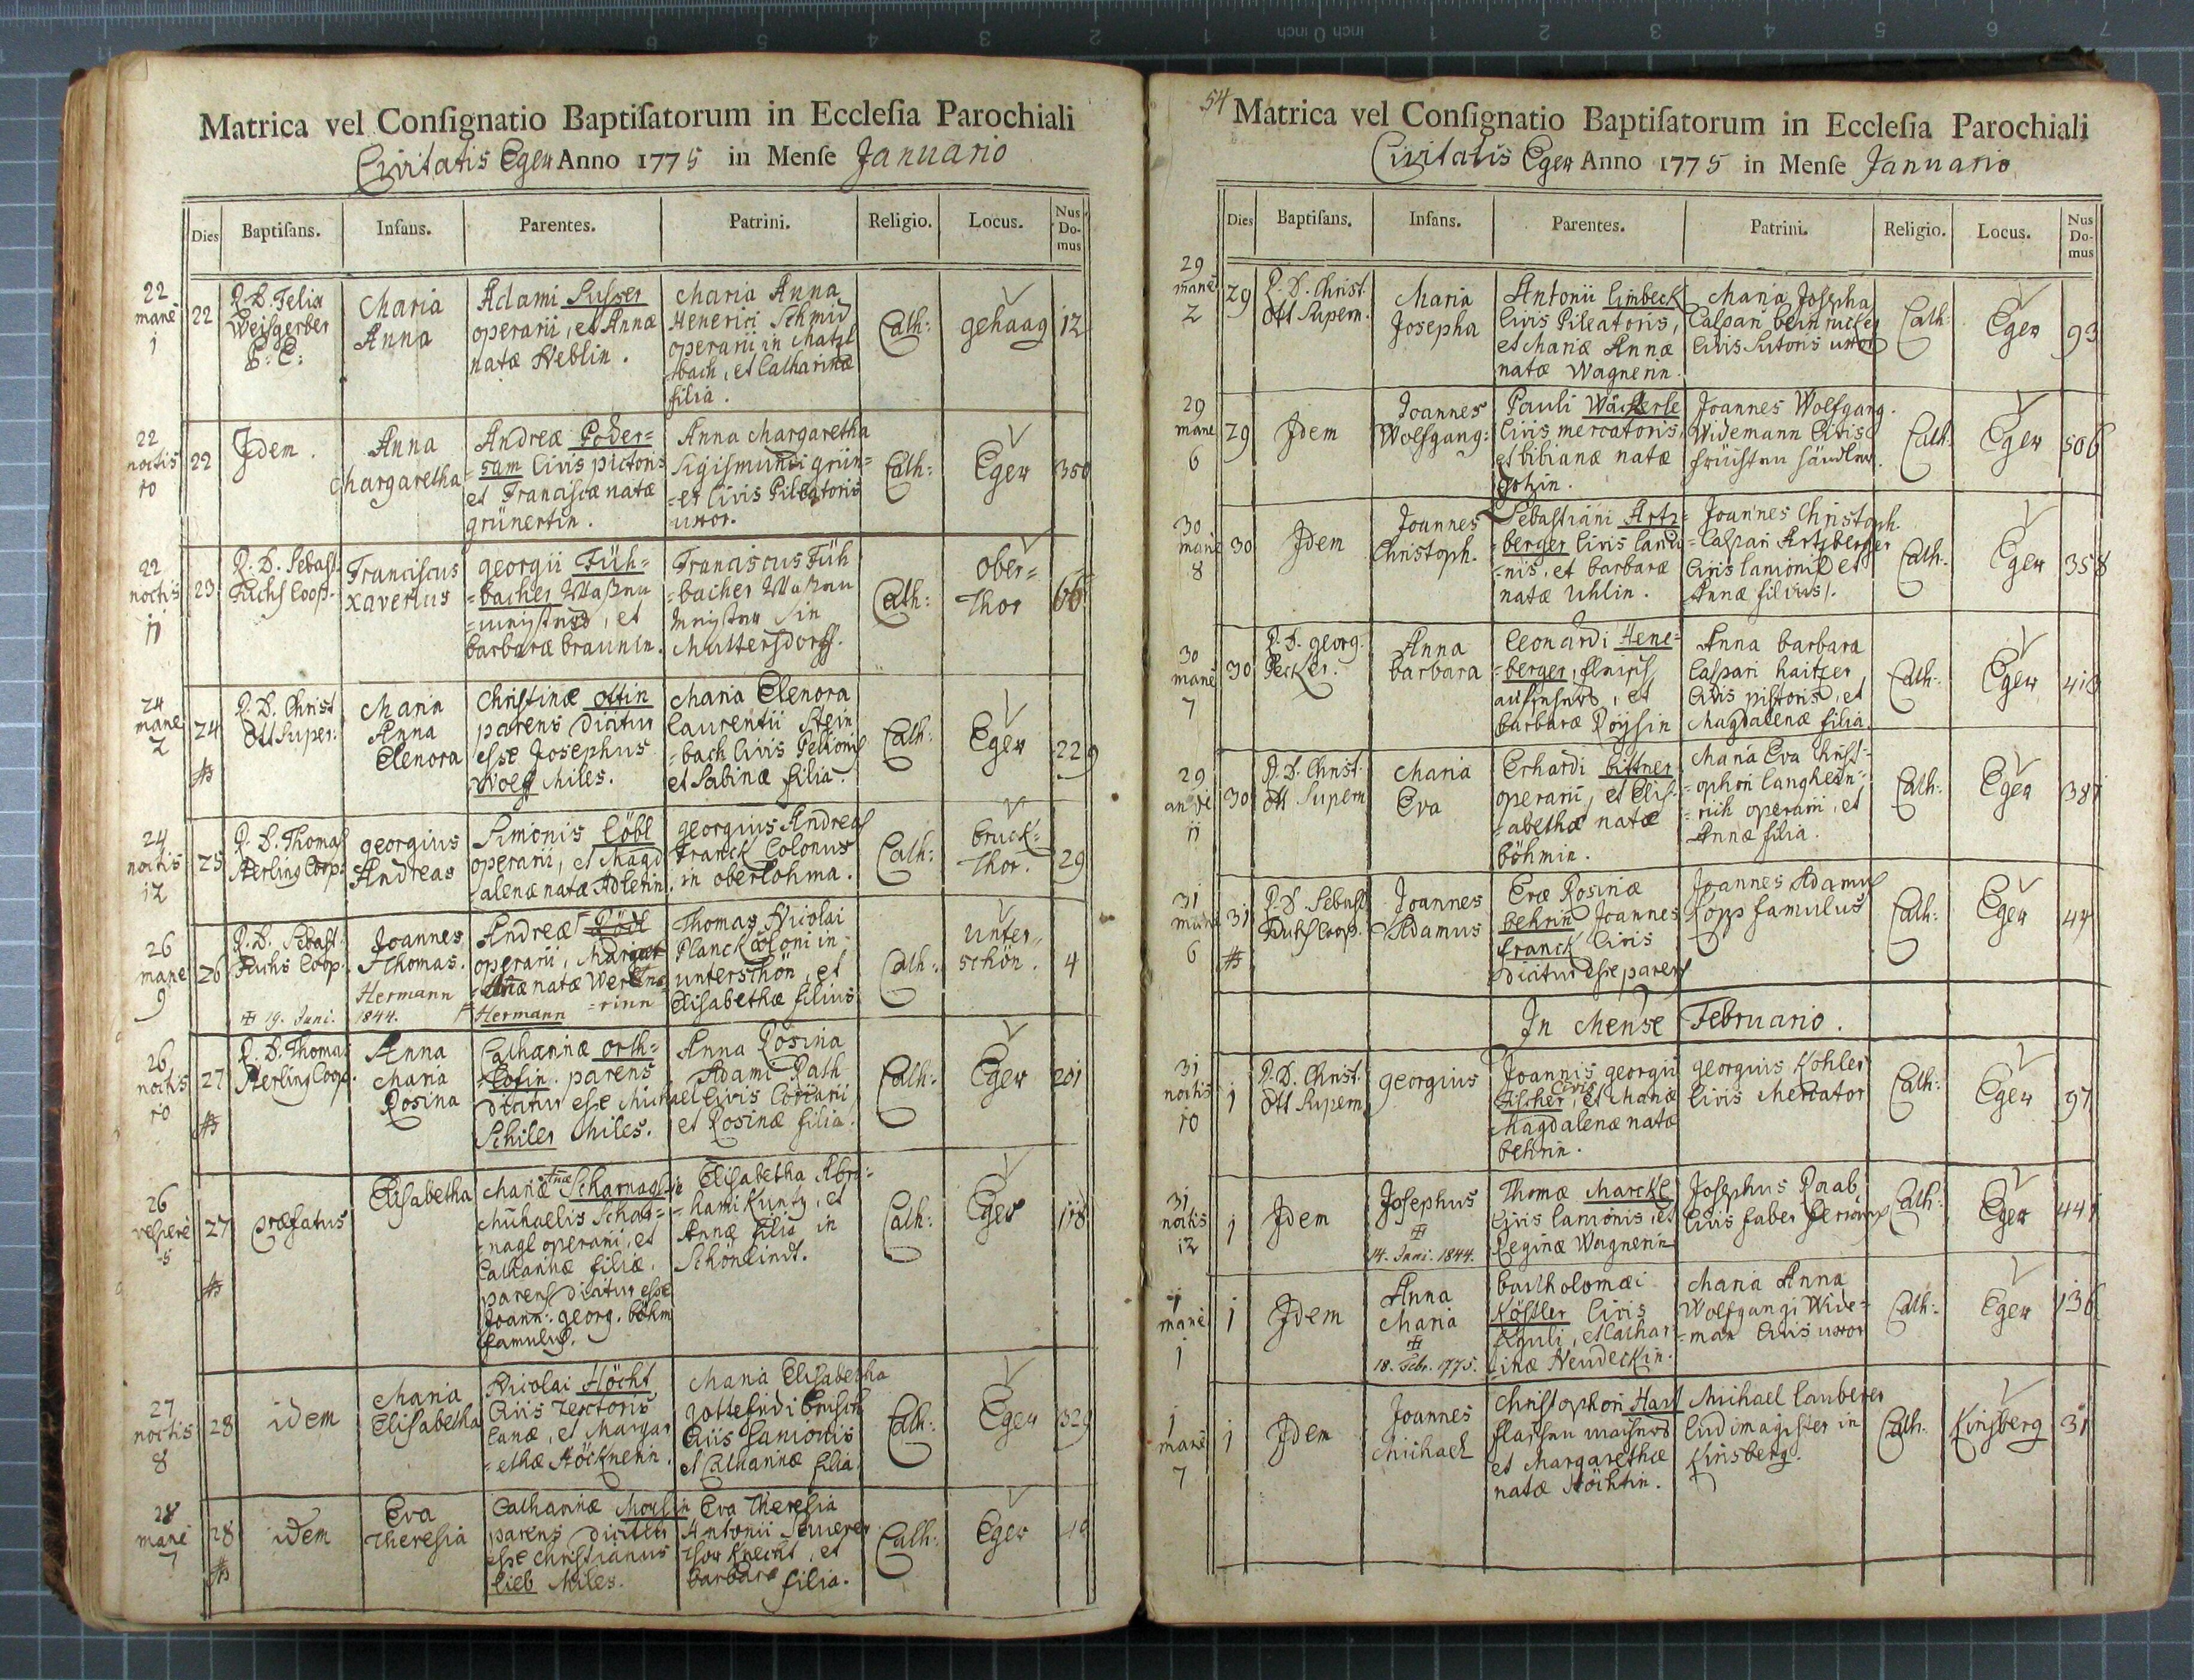 Matrica vel Consignatio Baptisatorum in Ecclesia Parochiali
Civitatis Eger Anno 1775 in Mense Januario
Dies Baptisans. Infans. Parentes. Patrini. Religio. Locus. Nus Domus
22 mane 1
22
P. D. Felix
Weisgerber
Maria
Anna
Adami Susser
operarii, et Annæ
natæ Neblin.
Maria Anna
Henerici Schmid
operarii in Matzl
=bach, et Catharinæ
filia.
Cath:
gehaag
12
22 noctis 10
22
Idem.
Anna
Margaretha
Andreæ Poder=
=sam Civis pictoris
et Franciscæ natæ
grünertin.
Anna Margaretha
Sigismundi grün=
=er Civis Pileatoris
uxor.
Cath:
Eger
350
22 noctis 11
23
P. D. Sebast.
Fuchs Coop.
Franciscus
Xaverius
georgii Füh=
=bacher
et
barbaræ braunin.
Franciscus Füh
=bacher
in
Muttersdorff.
Cath:
Ober=
Thor
66
24 mane 2
24
P. D. Christ
Ott Super:
Maria
Anna
Elenora
Christinæ Ottin
parens dicitur
esse Josephus
Wolf Miles.
Maria Elenora
Laurentii Stein
=bach Civis Pellionis
et Sabinæ filia.
Cath:
Eger
229
24 noctis 12
25
P. D. Thomas
Nerling Coop:
georgius
Andreas
Simonis Löbl
operarii, et Magd
=alenæ natæ Adletin.
georgius Andreas
Franck Colonus
in oberlohma.
Cath:
bruck=
Thor.
29
26 mane 9
26
P. D. Sebast.
Fuchs Coop.
Joannes
Thomas.
Hermann
19. Juni. 1844.
Andreæ Rödl
operarii, Margar
natæ
=rinn
Hermann
Thomas Nicolai
Planck Coloni in
unterschön, et
Elisabethæ filius
Cath:
Unter,,
schön.
4
26 noctis 10
27
P. D. Thomas
Nerling Coop.
Anna
Maria
Rosina
Catharinæ Orth=
parens
dicitur esse Michael
Schiler Miles.
Anna Rosina
Adami Rath
Civis Coriarii
et Rosinæ filia.
Cath:
Eger
201
26 vespere 5
27
præfatus
Elisabetha
Mariæ Annæ Scharnaglin
Michaelis Schar=
=nagl operarii, et
Catharinæ filiæ.
parens dicitur esse
Joann: georg. böhm
famulus.
Elisabetha Abra=
=hami Kuntz, et
Annæ filia in
Schönlindt.
Cath:
Eger
118
27 noctis 8
28
idem
Maria
Elisabetha
Nicolai Höcht
Civis Textoris
lanæ, et Margar
=ethæ Höcknerin.
Maria Elisabetha
gottefridi
Civis Lanionis
et Catharinæ filia.
Cath:
Eger
329
28 mane 7
28
idem
Eva
Theresia
Catharinæ
parens dicitur
esse Christianus
Lieb Miles.
Eva Theresia
Antonii
Thor Knecht, et
barbaræ filia.
Cath:
Eger
54
Matrica vel Consignatio Baptisatorum in Ecclesia Parochiali
Civitatis Eger Anno 1775 in Mense Januario
Dies Baptisans. Infans. Parentes. Patrini. Religio. Locus. Nus Domus
29 mane 2
29
P. D. Christ.
Ott Supern.
Maria
Josepha
Antonii Limbeck
Civis Pileatoris,
et Mariæ Annæ
natæ Wagnerin.
Maria Josepha
Caspari
Civis Sutoris uxor
Cath:
Eger
93
29 mane 6
29
Idem
Joannes
Wolfgang:
Pauli
Civis mercatoris,
et bibianæ natæ
Gotzin.
Joannes Wolfgang.
Widemann Civis
Cath.
Eger
506
30 mane 8
30
Idem
Joannes
Christoph.
Sebastiani Artz=
=berger Civis lanio
=nis, et barbaræ
natæ Uhlin.
Joannes Christoph.
Caspari Artzberger
Civis lanionis et
Annæ filius.
Cath:
Eger
358
30 mane 7
30
P. D. georg.
Pecker.
Anna
barbara
Leonardi Hene=
=berger,
et
barbaræ Poysin
Anna barbara
Caspari haitzer
Civis pistoris, et
Magdalenæ filia
Cath:
Eger
29
11
30
P. D. Christ.
Ott Supern
Maria
Eva
Erhardi bittner
operarii, et Elis=
=abethæ natæ
böhmin.
Maria Eva Christ=
=ophori Langhein=
=rich operarii, et
Annæ filia.
Cath:
Eger
387
31 mane 6
31
P. D. Sebast
Fuchs Coop.
Joannes
Adamus
Evæ Rosinæ
behrin Joannes
Franck Civis
dicitur esse parens
Joannes Adamus
Kopp famulus
Cath:
Eger
44
In Mense Februario.
31 noctis 10
1
P. D. Christ.
Ott Supern
georgius
Joannis georgii
Fischer Civis et Mariæ
Magdalenæ natæ
behrin.
georgius Kohler
Civis Mercator
Cath:
Eger
97
31 noctis 12
1
Idem
Josephus
14. Juni. 1844.
Thomæ Marckl
Civis lanionis, et
Reginæ Wagnerin
Josephus Raab
Civis faber
Cath:
Eger
441
1 mane 1
1
Idem
Anna
Maria
18. Febr. 1775.
bartholomæi
Köstler Civis
et Cathar
inæ Neudeckin.
Maria Anna
Wolfgangi Wide=
=man Civis uxor
Cath:
Eger
136
1 mane 7
1
Idem
Joannes
Michael
Christophori Hart
et Margarethæ
natæ Höchtin.
Michael Lauberer
Ludimagister in
Kinsberg.
Cath.
Kinsberg
31